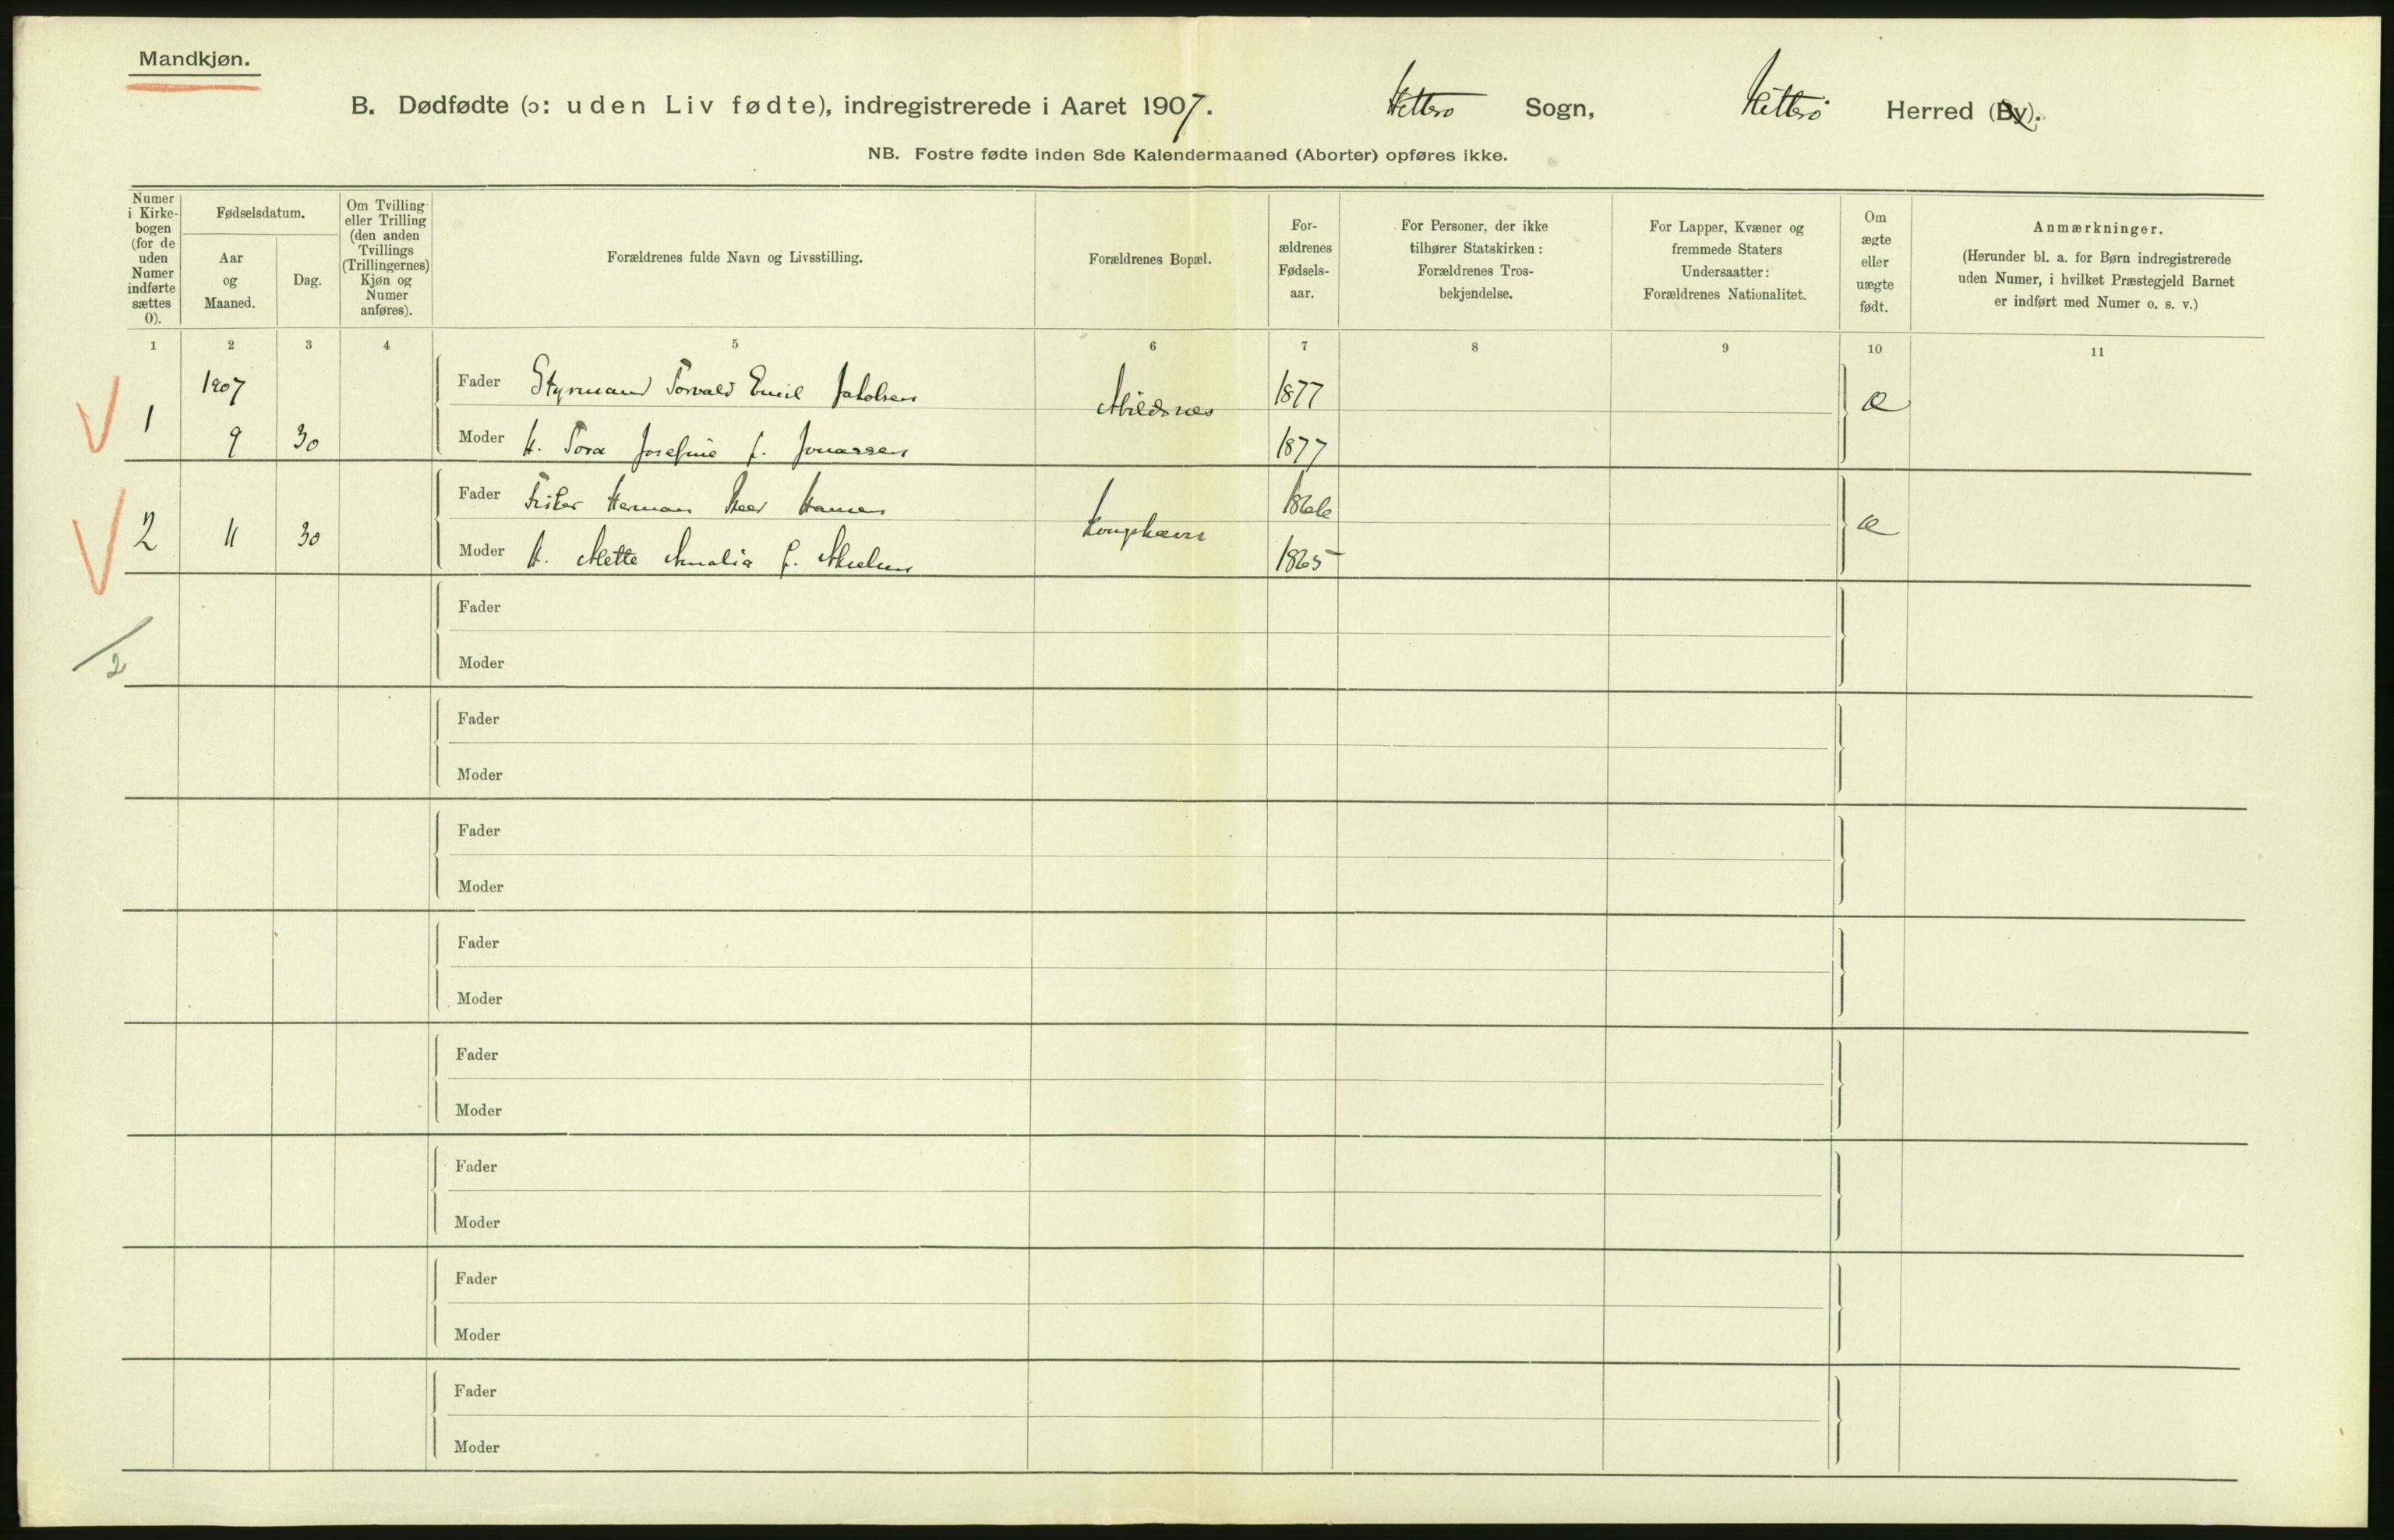 Mandkjøn.
B. Dødfødte (ɔ: uden Liv fødte), indregistrerede i Aaret 1907. Hitterø Sogn, Hitterø Herred (By).
NB. Fostre fødte inden 8de Kalendermaaned (Aborter) opføres ikke.
Numer i Kirkebogen (for de uden Numer indførte sættes 0).
Fødselsdatum.
Aar og Maaned.
Dag.
Om Tvilling eller Trilling (den anden Tvillings (Trillingernes) Kjøn og Numer anføres).
Forældrenes fulde Navn og Livsstilling.
Forældrenes Bopæl.
For-ældrenes Fødsels-aar.
For Personer, der ikke tilhører Statskirken: Forældrenes Tros-bekjendelse.
For Lapper, Kvæner og fremmede Staters Undersaatter: Forældrenes Nationalitet.
Om ægte eller uægte født.
Anmærkninger.
(Herunder bl. a. for Børn indregistrerede uden Numer, i hvilket Præstegjeld Barnet er indført med Numer o. s. v.)
1 2 3 4 5 6 7 8 9 10 11
1907
Fader Styrmand Torvald Emil Jakobsen 1877
1 9 30 Æ
Moder H. Tora Josefine f. Jonassen 1877
Fader Fisker Herman Hansen 1866
2 11 30 Æ
Moder H. Mette Amalia f. 1865
2
Fader
Moder
Fader
Moder
Fader
Moder
Fader
Moder
Fader
Moder
Fader
Moder
Fader
Moder
Fader
Moder